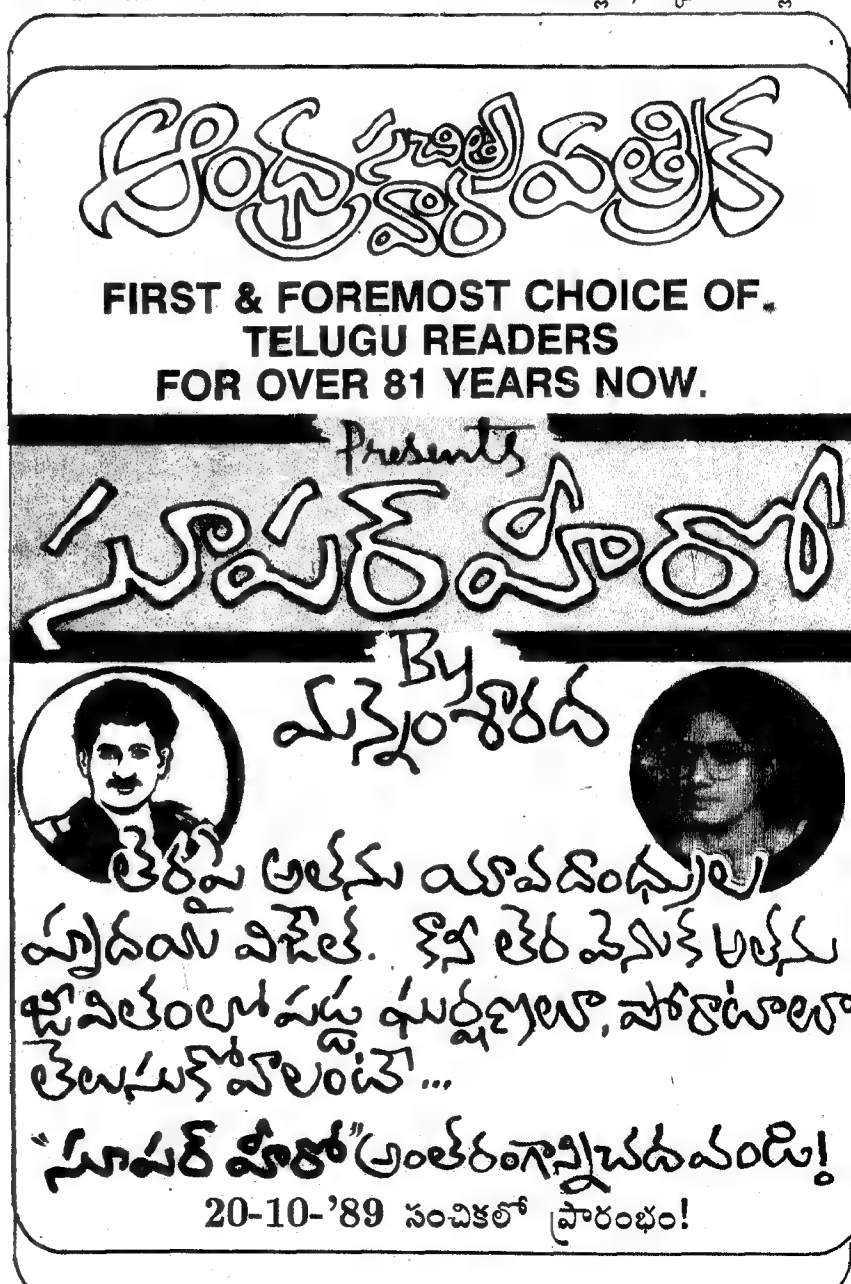 ఆంధ్ర సచిత్ర వార పత్రిక
FIRST & FOREMOST CHOICE OF
TELUGU READERS
FOR OVER 81 YEARS NOW.
Presents
సూపర్ హీరో
By
మన్నెం శారద
తెరపై అతను యావదాంధ్రుల
హృదయ విజేత. కానీ తెర వెనుక అతను
జీవితంలో పడ్డ ఘర్షణలూ, పోరాటాలూ
తెలుసుకోవాలంటే...
"సూపర్ హీరో" అంతరంగాన్ని చదవండి!
20-10-'89 సంచికలో ప్రారంభం!